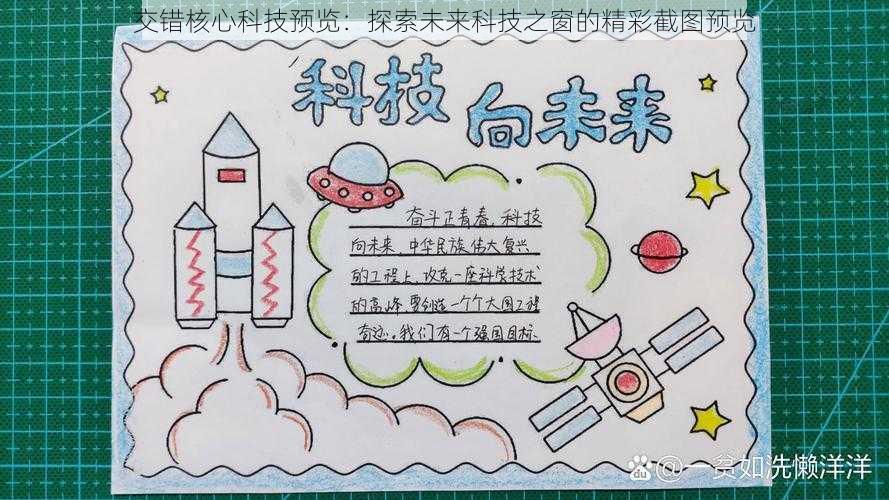 交错核心科技预览：探索未来科技之窗的精彩截图预览
科技
向未来
奋斗正青春，科技
向未来，中华民族伟大复兴
的工程上，攻克一座科学技术
的高峰，要创造一个个大国工程
奇迹。我们有一个强国目标
@一贫如洗懒洋洋